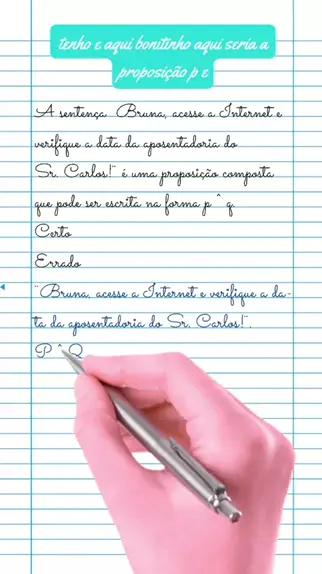 tenho e aqui bonitinho aqui seria a
proposição p e
A sentença Bruna, acesse a Internet e
verifique a data da aposentadoria do
Sr. Carlos!" é uma proposição composta
que pode ser escrita na forma p ^ q
Certo
Errado
"Bruna, acesse a Internet e verifique a da-
ta da aposentadoria do Sr. Carlos!".
P ^ Q